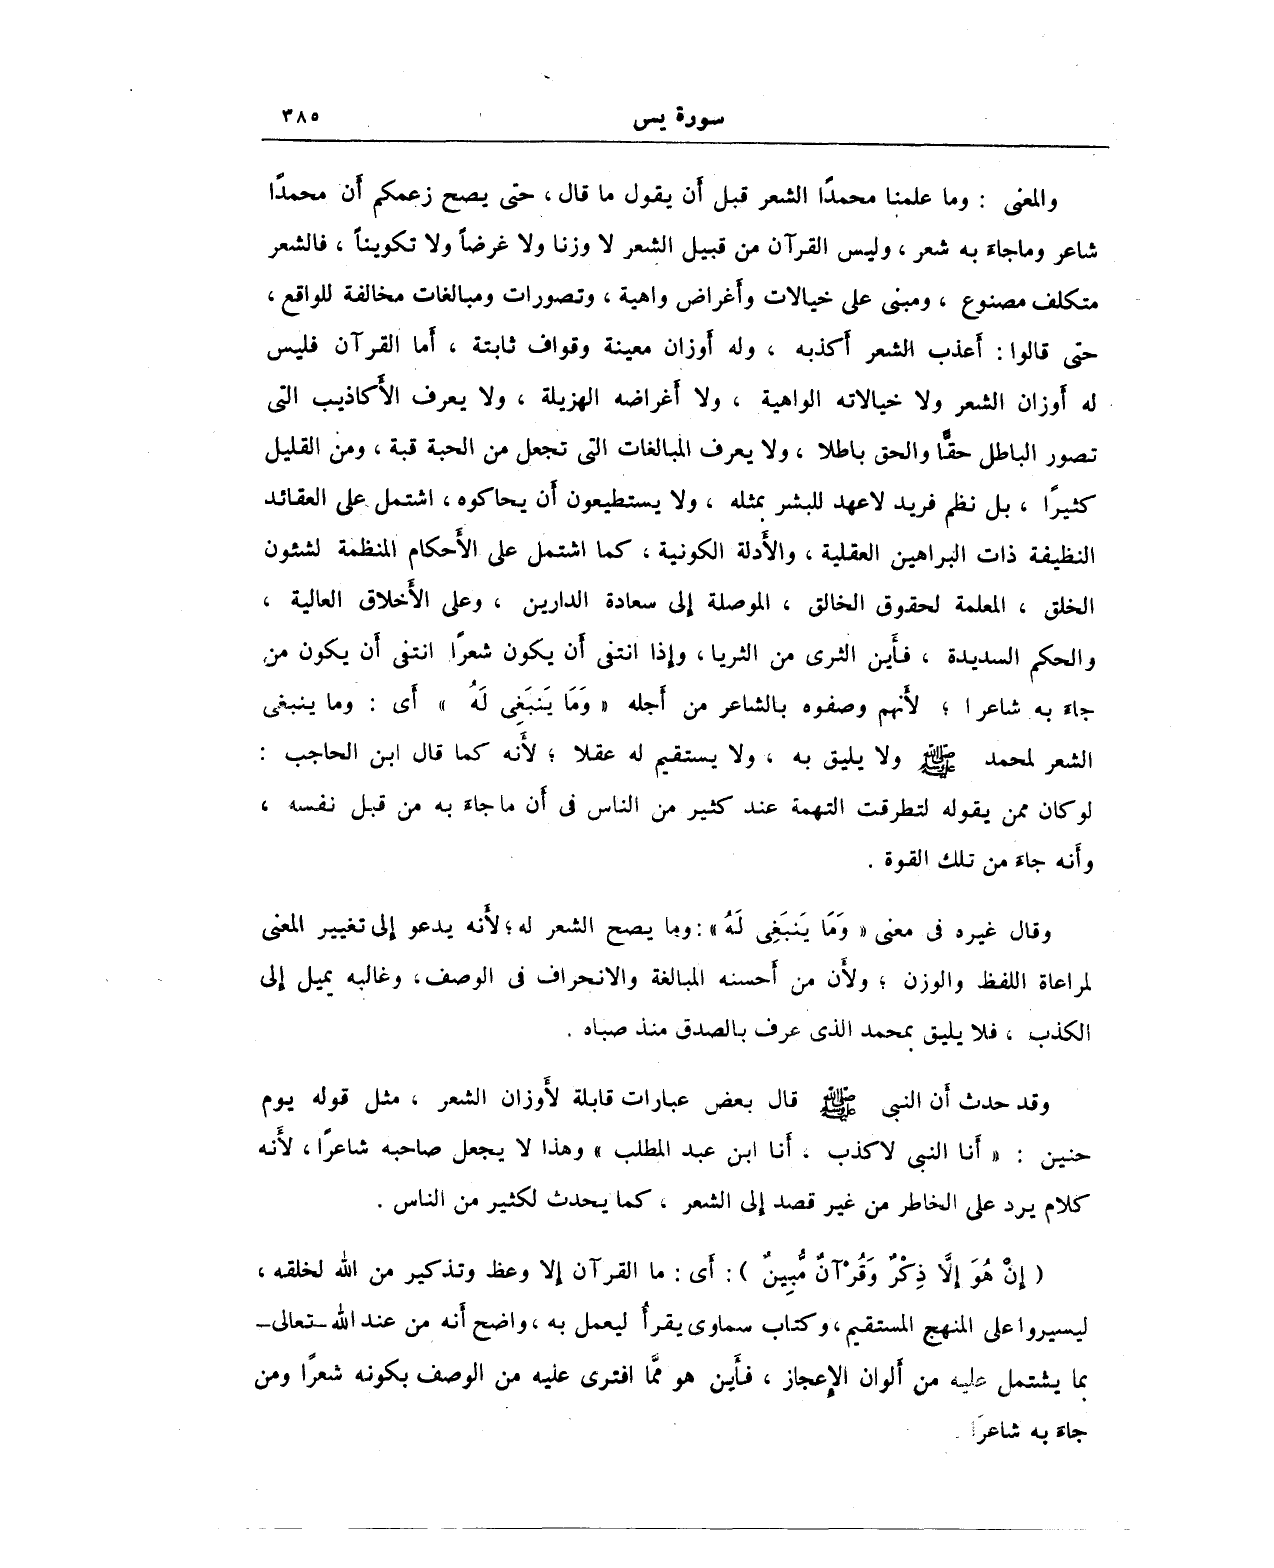 سورة يس ٣٨٥
والمعنى : وما علمنا محمدًا الشعر قبل أن يقول ما قال ، حتى يصح زعمكم أن محمدًا
شاعر وماجاء به شعر ، وليس القرآن من قبيل الشعر لا وزنا ولا غرضاً ولا تكويناً ، فالشعر
متكلف مصنوع ، ومبنى على خيالات وأغراض واهية ، وتصورات ومبالغات مخالفة للواقع ،
حتى قالوا : أعذب الشعر أكذبه ، وله أوزان معينة وقواف ثابتة ، أما القرآن فليس
له أوزان الشعر ولا خيالاته الواهية ، ولا أغراضه الهزيلة ، ولا يعرف الأكاذيب التى
تصور الباطل حقًّا والحق باطلا ، ولا يعرف المبالغات التى تجعل من الحبة قبة ، ومن القليل
كثيرًا ، بل نظم فريد لاعهد للبشر بمثله ، ولا يستطيعون أن يحاكوه ، اشتمل على العقائد
النظيفة ذات البراهين العقلية ، والأدلة الكونية ، كما اشتمل على الأحكام المنظمة لشئون
الخلق ، المعلمة لحقوق الخالق ، الموصلة إلى سعادة الدارين ، وعلى الأخلاق العالية ،
والحكم السديدة ، فأين الثرى من الثريا ، وإذا انتفى أن يكون شعرًا انتفى أن يكون من
جاء به شاعرا ؛ لأنهم وصفوه بالشاعر من أجله « وَمَا يَنبَغِى لَهُ » أى : وما ينبغى
الشعر لمحمد ﷺ ولا يليق به ، ولا يستقيم له عقلا ؛ لأنه كما قال ابن الحاجب :
لو كان ممن يقوله لتطرقت التهمة عند كثير من الناس فى أن ماجاء به من قبل نفسه ،
وأنه جاء من تلك القوة .
وقال غيره فى معنى « وَمَا يَنبَغِى لَهُ » : وما يصح الشعر له ؛ لأنه يدعو إلى تغيير المعنى
لمراعاة اللفظ والوزن ؛ ولأن من أحسنه المبالغة والانحراف فى الوصف ، وغالبه يميل إلى
الكذب ، فلا يليق بمحمد الذى عرف بالصدق منذ صباه .
وقد حدث أن النبى ﷺ قال بعض عبارات قابلة لأوزان الشعر ، مثل قوله يوم
حنين : « أنا النبى لاكذب ، أنا ابن عبد المطلب » وهذا لا يجعل صاحبه شاعرًا ، لأنه
كلام يرد على الخاطر من غير قصد إلى الشعر ، كما يحدث لكثير من الناس .
( إِنْ هُوَ إِلَّا ذِكْرٌ وَقُرْآنٌ مُّبِينٌ ) : أى : ما القرآن إلا وعظ وتذكير من الله لخلقه ،
ليسيروا على المنهج المستقيم ، وكتاب سماوى يقرأ ليعمل به ، واضح أنه من عند الله ـ تعالى ـ
بما يشتمل عليه من ألوان الإعجاز ، فأين هو ممَّا افترى عليه من الوصف بكونه شعرًا ومن
جاء به شاعرًا .